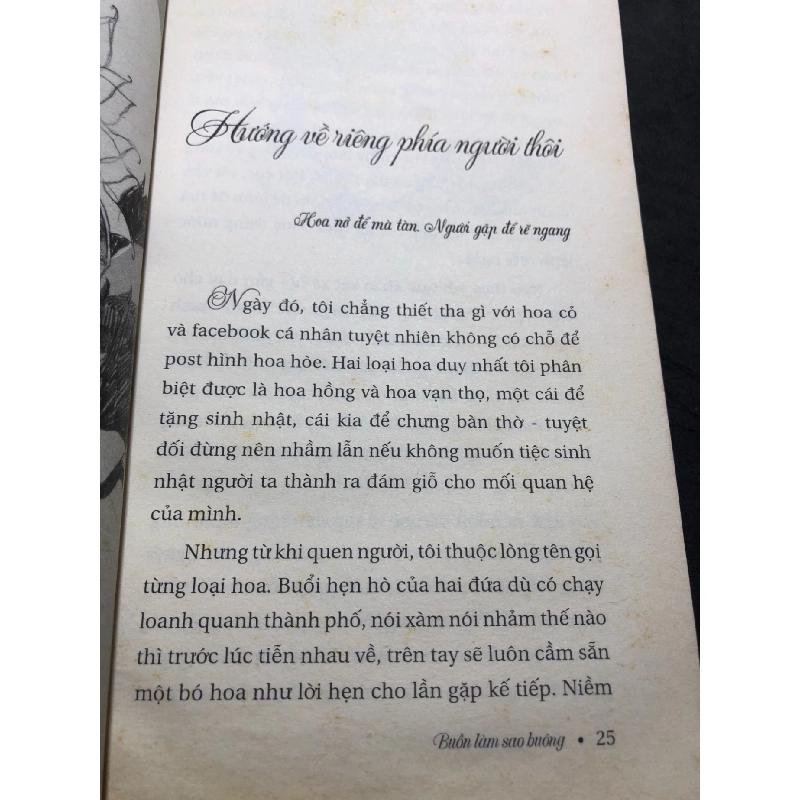 Hướng về riêng phía người thôi
Hoa nở để mà tàn. Người gặp để rẽ ngang
Ngày đó, tôi chẳng thiết tha gì với hoa cỏ
và facebook cá nhân tuyệt nhiên không có chỗ để
post hình hoa hòe. Hai loại hoa duy nhất tôi phân
biệt được là hoa hồng và hoa vạn thọ, một cái để
tặng sinh nhật, cái kia để chưng bàn thờ - tuyệt
đối đừng nên nhầm lẫn nếu không muốn tiệc sinh
nhật người ta thành ra đám giỗ cho mối quan hệ
của mình.
Nhưng từ khi quen người, tôi thuộc lòng tên gọi
từng loại hoa. Buổi hẹn hò của hai đứa dù có chạy
loanh quanh thành phố, nói xàm nói nhảm thế nào
thì trước lúc tiễn nhau về, trên tay sẽ luôn cầm sẵn
một bó hoa như lời hẹn cho lần gặp kế tiếp. Niềm
Buồn làm sao buông • 25